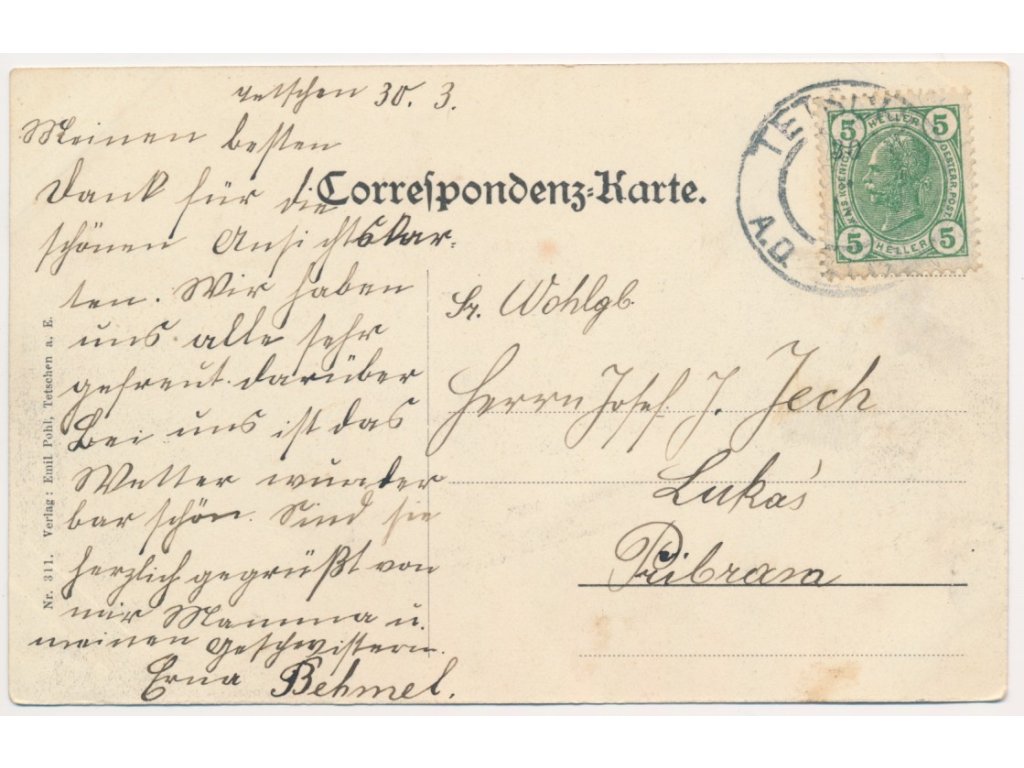 Tetschen 30. 3.
Meinen besten
Dank für die
schönen Ansichtskar-
ten. Wir haben
uns alle sehr
gefreut darüber
Bei uns ist das
Wetter wunder
bar schön. Sind sie
herzlich gegrüßt von
mir Mamma u.
meinen Geschwistern.
Erna Behmel.
Nr. 311. Verlag: Emil Pohl, Tetschen a. E.
Correspondenz-Karte.
TETSCHEN
A.D.
5 HELLER 5
KAIS. KOENIGL. OESTERR. POST
5 HELLER 5
Sr. Wohlgb.
Herrn Josef J. Jech
Lukáš
Pribram